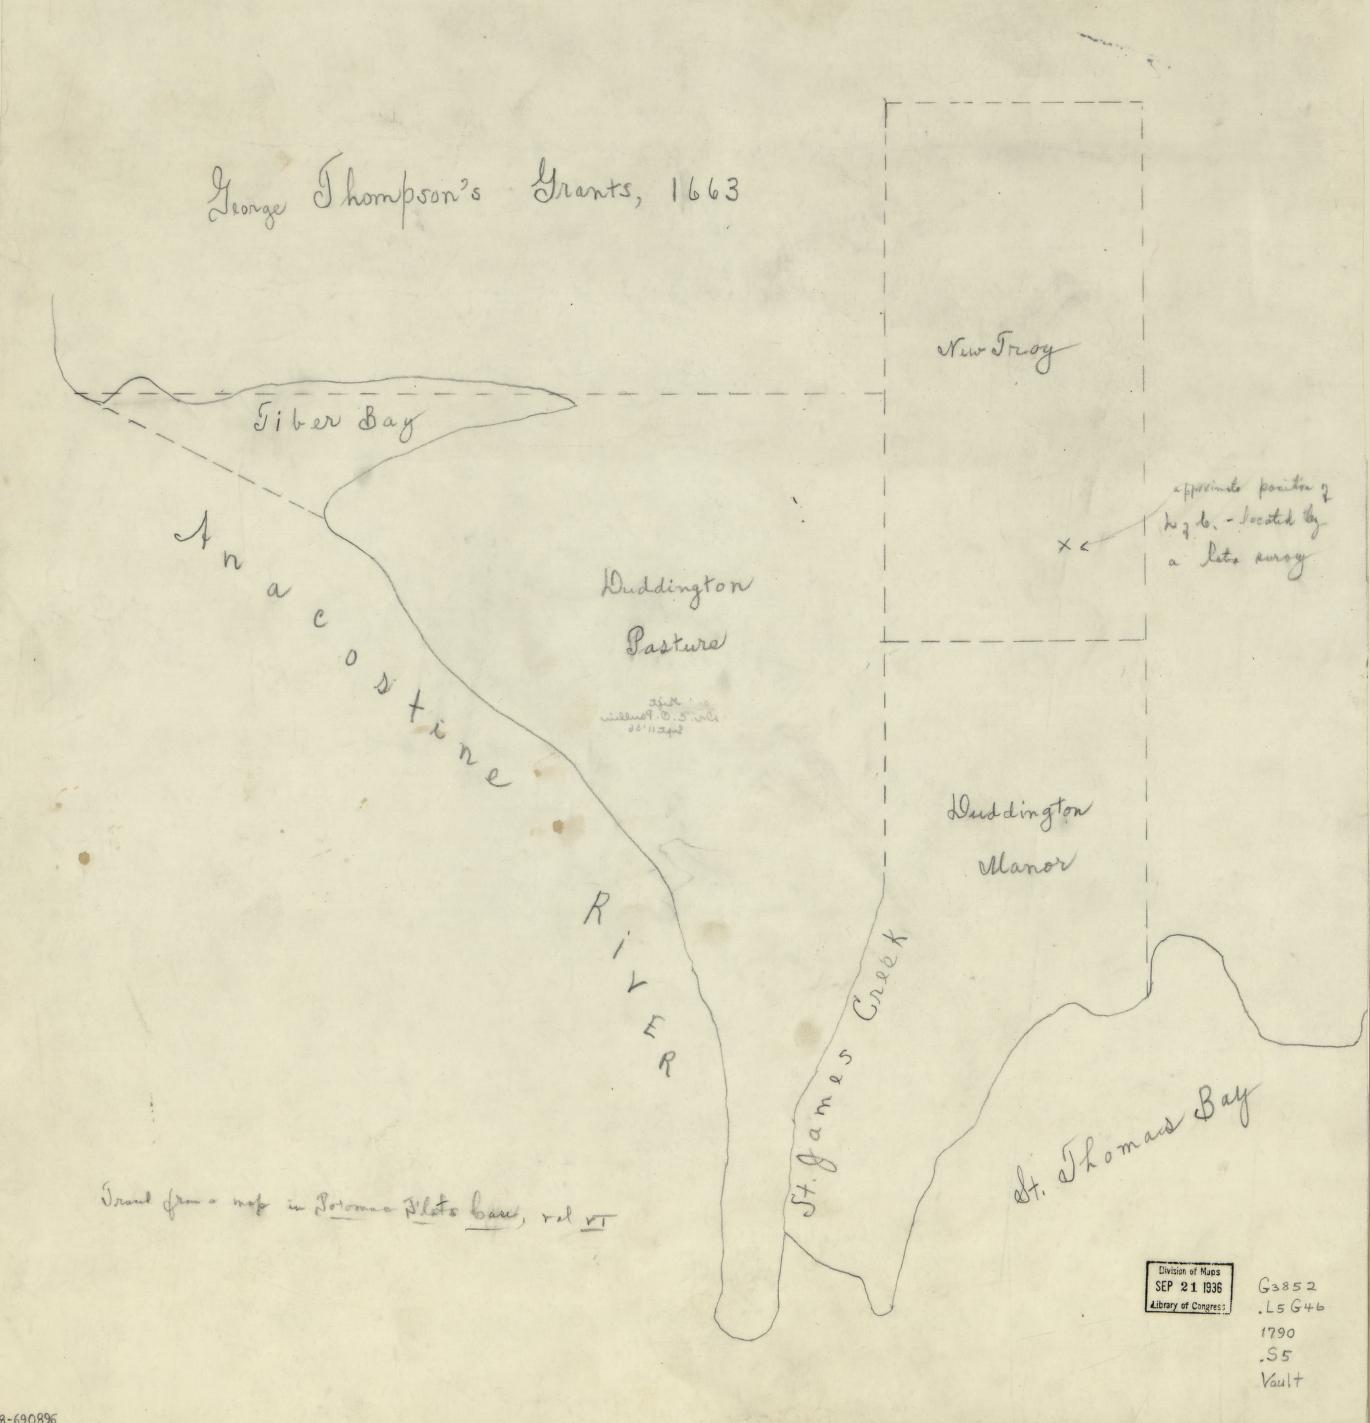 George Thompson's Grants, 1663
New Troy
Tiber Bay
approximate position of
L of C. - located by
a later survey
x
Anacostine River
Duddington
Pasture
Gift
Dr. C. O. Paullin
Sept 11 '36
Duddington
Manor
St. James Creek
St. Thomas Bay
Traced from a map in Potomac Flats Case, vol VI
Division of Maps
SEP 21 1936
Library of Congress
G3852
.L5G46
1790
.S5
Vault
8-690896